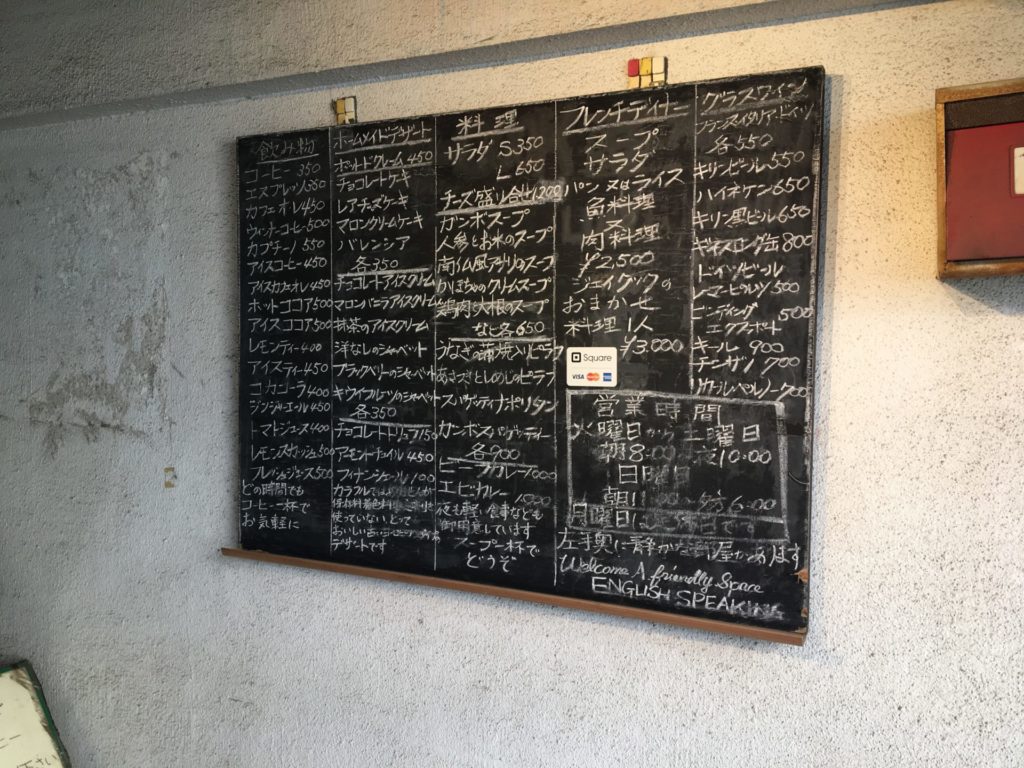 飲み物
コーヒー 350
エスプレッソ350
カフェオレ450
ウィンナーコーヒー500
カプチーノ 550
アイスコーヒー450
アイスカフェオレ450
ホットココア500
アイスココア500
レモンティー400
アイスティー450
コカコーラ400
ジンジャーエール450
トマトジュース400
レモンスカッシュ500
フレッシュジュース500
どの時間でも
コーヒー一杯で
お気軽に
ホームメイドデザート
チョコレートケーキ
レアチーズケーキ
マロンクリームケーキ
バレンシア
各350
チョコレートアイスクリーム
マロンバニラアイスクリーム
抹茶のアイスクリーム
洋なしのシャーベット
ブラックベリーのシャーベット
キウイフルーツのシャーベット
各350
チョコレートトリュフ150
450
フィナンシェ 100
カラフルでは
保存料着色料
使っていない、とって
おいしい
デザートです
料理
サラダ S350
L 650
チーズ盛り合せ1,200
ガンボスープ
人参とお米のスープ
南仏風アサリのスープ
かぼちゃのクリームスープ
鶏肉と大根のスープ
など各650
うなぎの蒲焼入りピラフ
あさりとしめじのピラフ
スパゲッティナポリタン
ガンボスパゲッティー
各900
ビーフカレー1000
エビカレー
1000
夜も軽い食事なども
御用意しています
スープ一杯で
どうぞ
フレンチディナー
スープ
サラダ
パン又はライス
魚料理
又
肉料理
¥2,500
ジェイクックの
おまかせ
料理1人
¥3,000
Square
VISA
グラスワイン
フランス・イタリア・ドイツ
各550
キリンビール550
ハイネケン650
キリン黒ビール650
ギネスロング缶800
ドイツビール
500
ビンディング 500
エクスポート
キール 900
チンザノ 700
リカール 700
営業時間
火曜日から土曜日
朝8:00 夜10:00
日曜日
朝11:00から夕6:00
月曜日
左手奥に静かな部屋があります
Welcome A friendly Space
ENGLISH SPEAKING